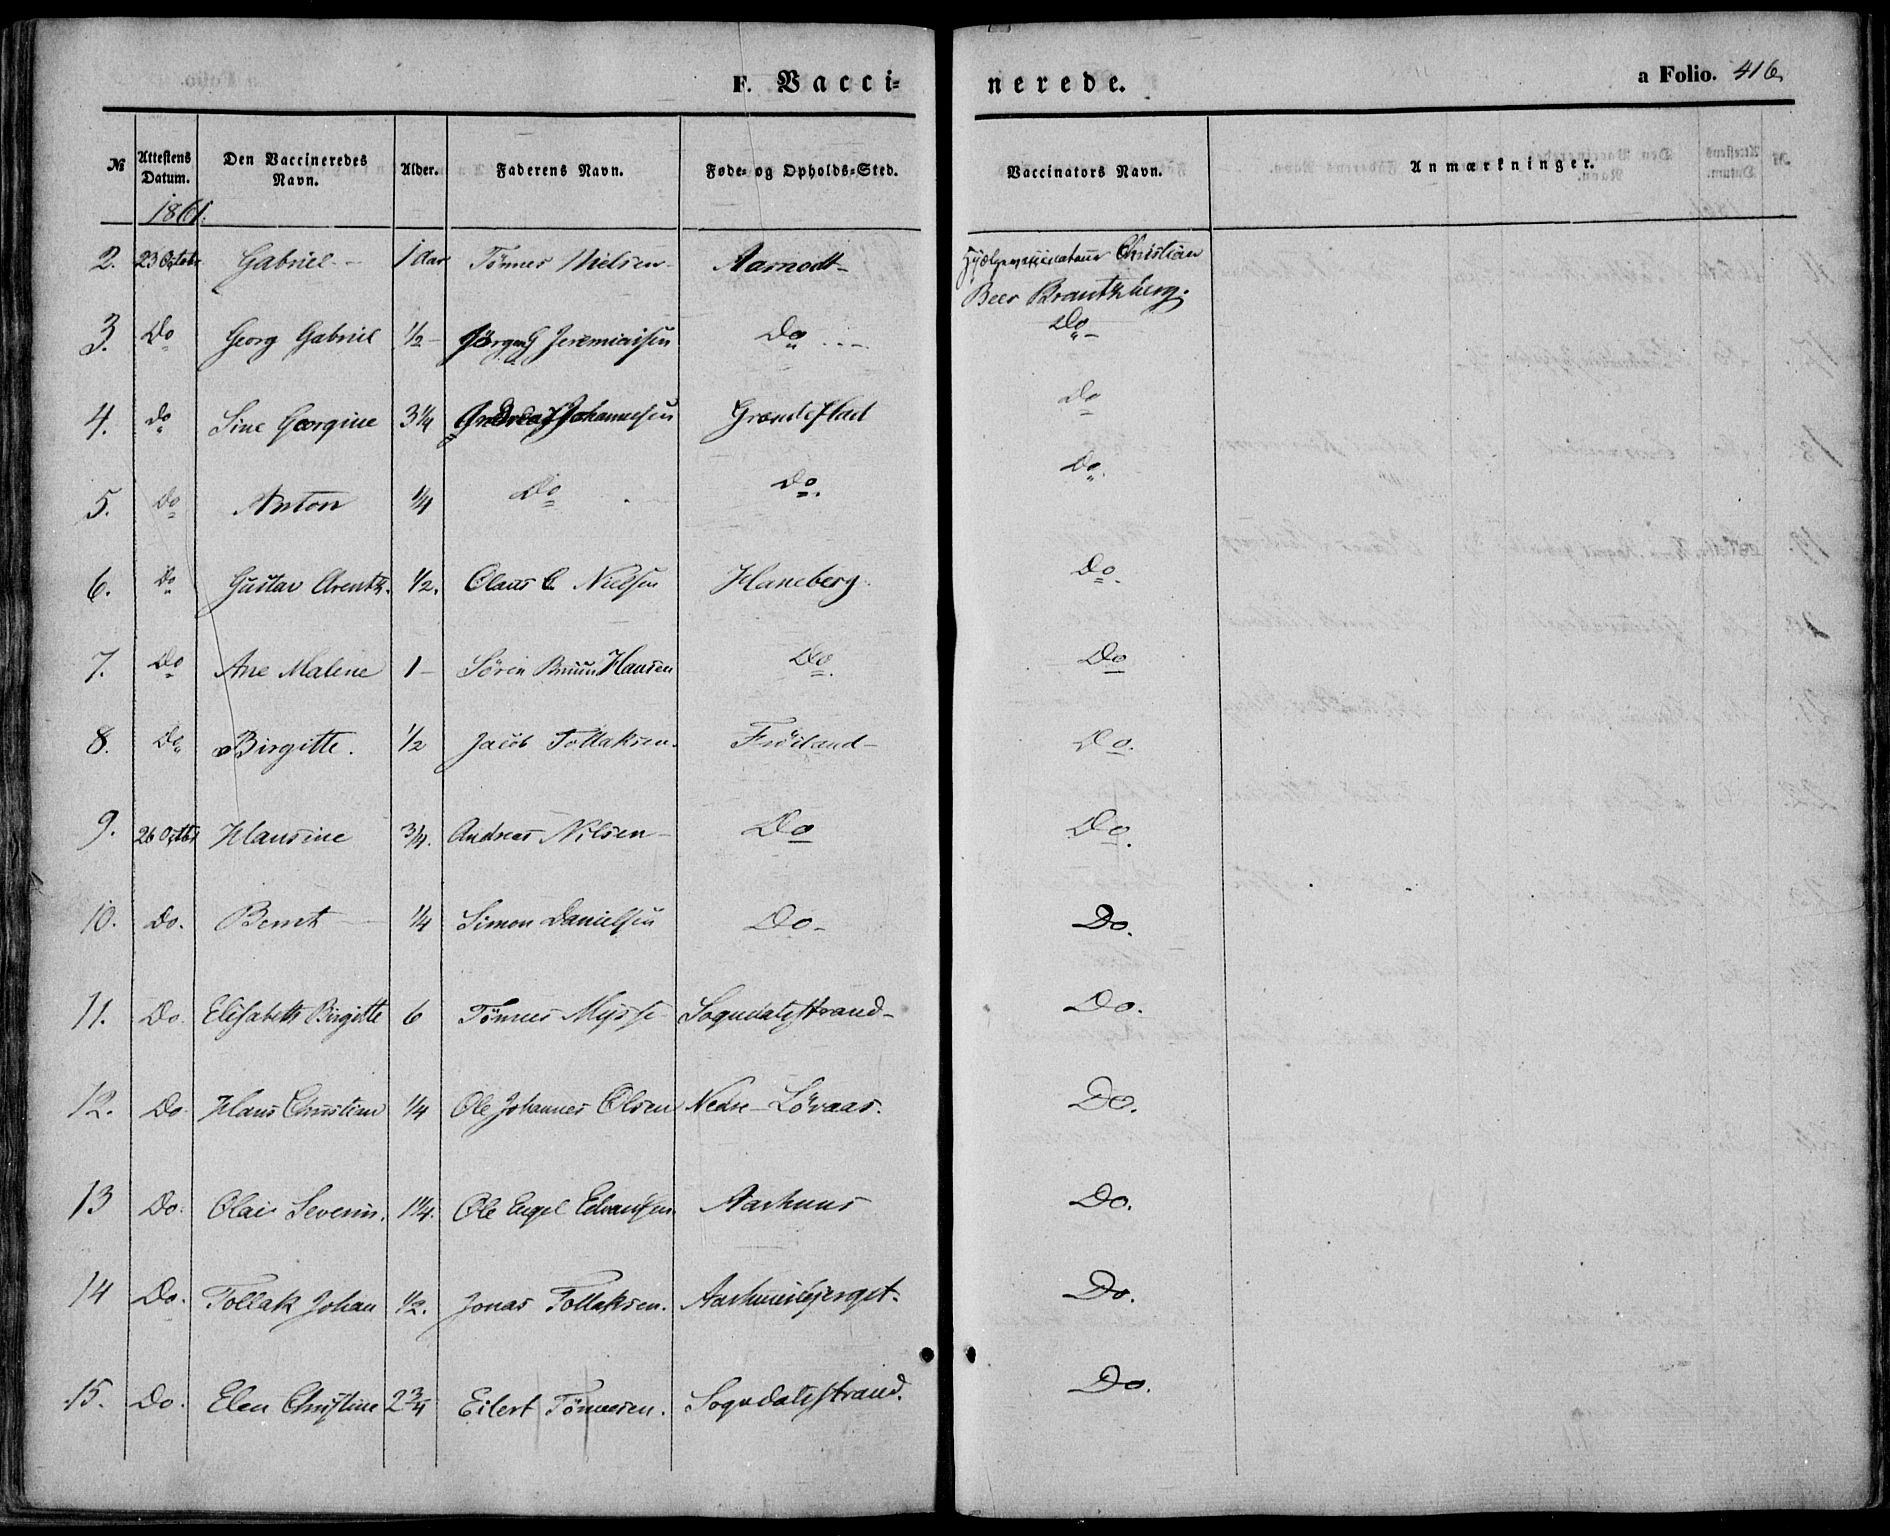 F. Vacci=
nerede.
a Folio. 416.
№ Attestens Datum. Den Vaccineredes Navn. Alder. Faderens Navn. Føde- og Opholds-Sted. Vaccinators Navn. Anmærkninger.
1861.
2. 23 Octobr Gabriel 1 Aar Tönnes Nielsen Aamodt Christian
Beer Brantzberg.
3. Do Georg Gabriel 1/2 Jörgen G Jeremiaisen Do Do
4. do Sine Georgine 3 1/4 Johannesen Do
5. Do Anton 1/4 Do Do. Do.
6. Do Gustav Arentz. 1/2. Olaus C Nielsen Haneberg. Do.
7. Do Ane Malene 1 Sören Bruun Hansen Do. Do
8. Do Birgitte. 1/2 Jacob Tollaksen. Fröiland Do.
9. 26 Octbr Hansine 3/4. Andreas Nilsen Do Do.
10. Do. Bernt 1/4 Simon Danielsen Do Do.
11. Do Elisabeth Birgitte 6 Tönnes Mysse Sogndalsstrand Do.
12. Do Hans Christian 1/4 Ole Johannes Olsen Nedre Lövaas. Do.
13 Do. Olai Severin. 1 1/4. Ole Engel Edvardsen Aarhuus Do.
14 Do. Tollak Johan 1/2. Jonas Tollaksen. Aarhuusbjerget. Do.
15. Do. Elen Christine 2 3/4 Eilert Tönnesen. Sogndalsstrand. Do.